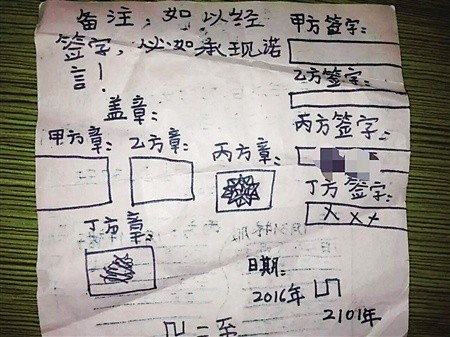 备注：如以经
签字，以如承现诺
言！
甲方签字：
乙方签字：
丙方签字：
丁方签字：
xxx
盖章：
甲方章： 乙方章： 丙方章：
丁方章：
日期：
2016年
2101年
二至